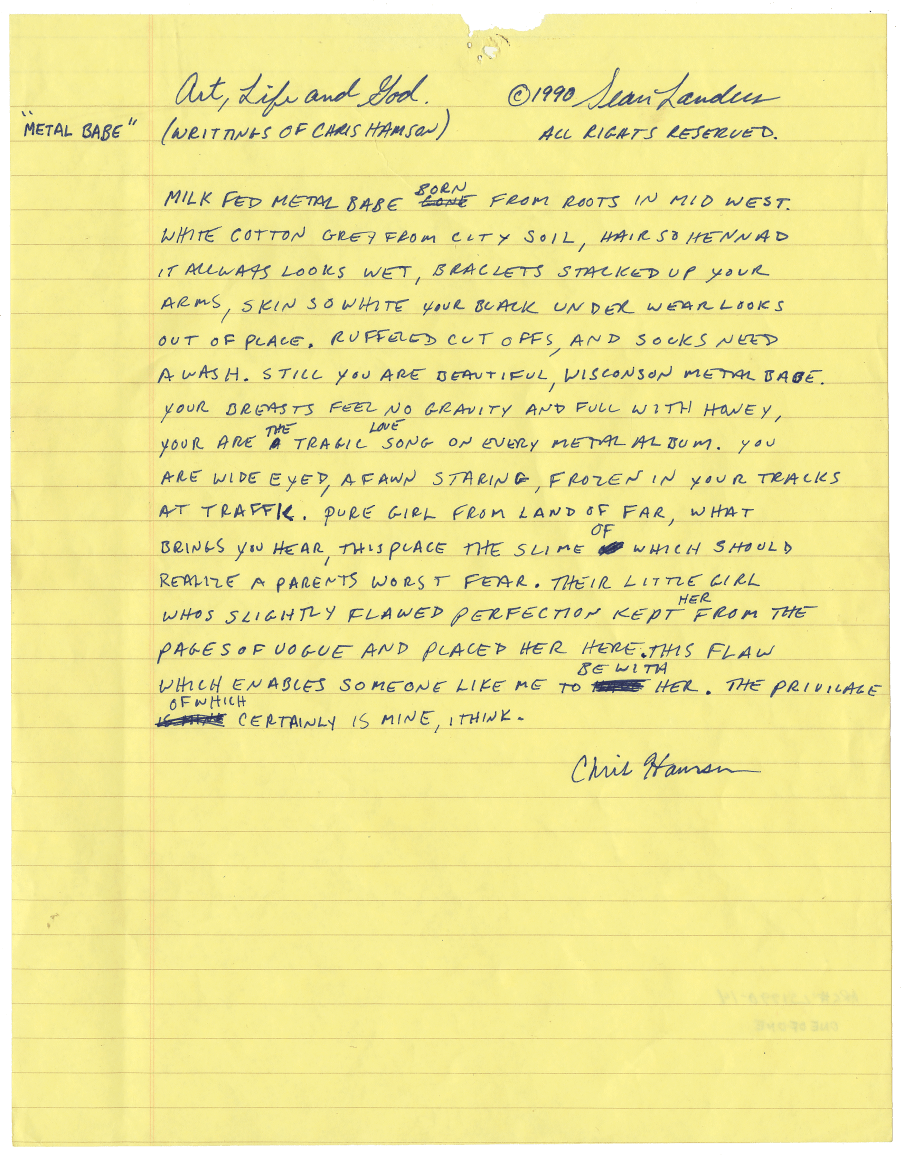 Art, Life and God. ©1990 Sean Landers
"METAL BABE" (WRITTINGS OF CHRIS HAMSON) ALL RIGHTS RESERVED.
MILK FED METAL BABE BORN FROM ROOTS IN MID WEST.
WHITE COTTON GREY FROM CITY SOIL, HAIR SO HENNAD
IT ALLWAYS LOOKS WET, BRACLETS STACKED UP YOUR
ARMS, SKIN SO WHITE YOUR BLACK UNDER WEAR LOOKS
OUT OF PLACE. RUFFELED CUT OFFS, AND SOCKS NEED
A WASH. STILL YOU ARE BEAUTIFUL, WISCONSON METAL BABE.
YOUR BREASTS FEEL NO GRAVITY AND FULL WITH HONEY,
YOUR ARE THE TRAGIC LOVE SONG ON EVERY METAL ALBUM. YOU
ARE WIDE EYED, A FAWN STARING, FROZEN IN YOUR TRACKS
AT TRAFFIK. PURE GIRL FROM LAND OF FAR, WHAT
BRINGS YOU HEAR, THIS PLACE THE SLIME OF WHICH SHOULD
REALIZE A PARENTS WORST FEAR. THEIR LITTLE GIRL
WHOS SLIGHTLY FLAWED PERFECTION KEPT HER FROM THE
PAGES OF VOGUE AND PLACED HER HERE. THIS FLAW
WHICH ENABLES SOMEONE LIKE ME TO BE WITH HER. THE PRIVILAGE
OF WHICH CERTAINLY IS MINE, I THINK.
Chris Hamson